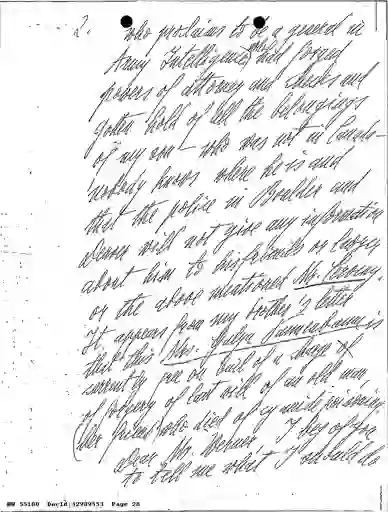 2. who proclaims to be a general in
Army Intelligence, had forged
powers of attorney and checks and
gotten hold of all the belongings
of my son - who was not in
nobody knows where he is and
that the police in Boulder and
Denver will not give any information
about him to his family or lawyer
or the above mentioned Mr.
It appears from my brother's letter
that this Mrs. is
currently free on bail of a charge of
of forgery of last will of an old man
(her friend) who died of cyanide poisoning
Dear Mr. I beg of you
to tell me what I should do
HW 55180 DocId:32989553 Page 28